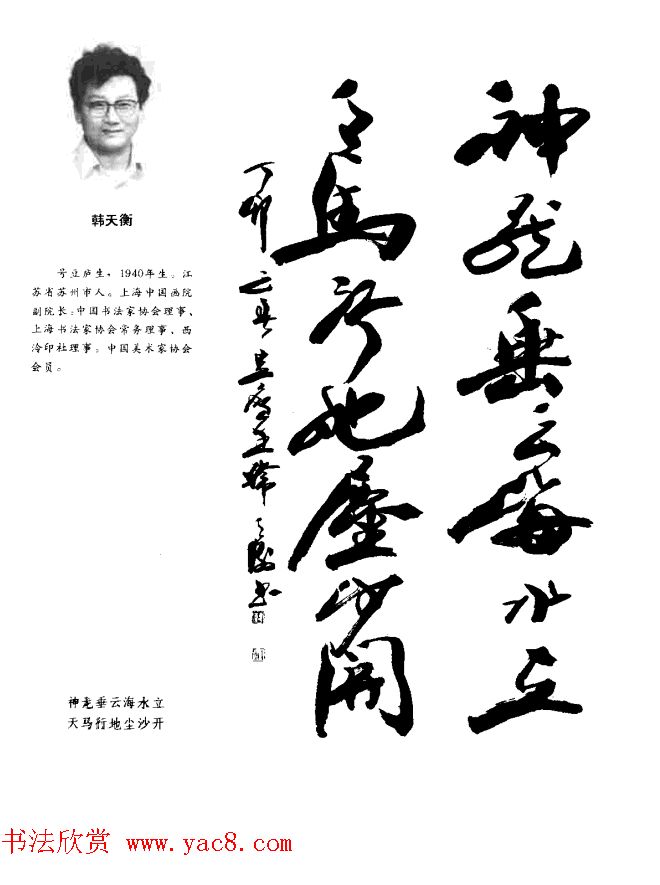 韩天衡
号豆庐生,1940年生。江
苏省苏州市人。上海中国画院
副院长;中国书法家协会理事、
上海书法家协会常务理事、西
泠印社理事。中国美术家协会
会员。
神龙垂云海水立
天马行地尘沙开
丁卯
天衡书
神龙垂云海水立
天马行地尘沙开
书法欣赏 www.yac8.com